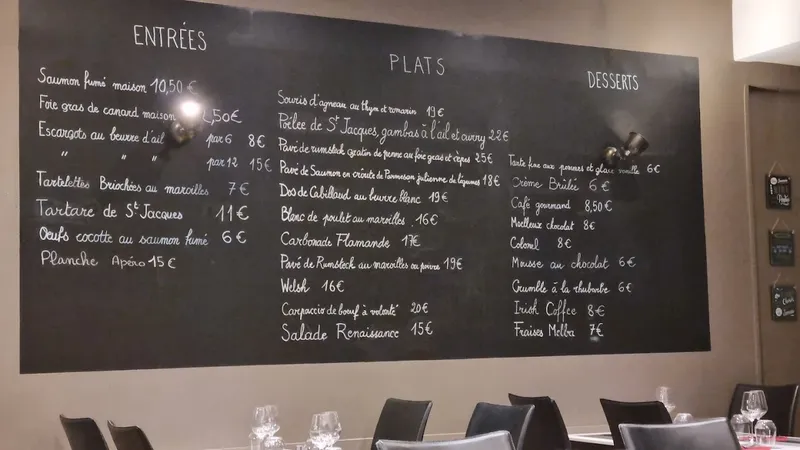 ENTRÉES
Saumon fumé maison 10,50 €
Foie gras de canard maison 2,50€
Escargots au beurre d'ail par 6 8€
" " " par 12 15€
Tartelettes Briochées au maroilles 7€
Tartare de St Jacques 11€
Oeufs cocotte au saumon fumé 6€
Planche Apéro 15€
PLATS
Souris d'agneau au thym et romarin 19€
Poêlée de St Jacques, gambas à l'ail et curry 22€
Pavé de rumsteck gratin de penne au foie gras et cèpes 25€
Pavé de Saumon en croûte de Parmesan julienne de légumes 18€
Dos de Cabillaud au beurre blanc 19€
Blanc de poulet au maroilles 16€
Carbonade Flamande 17€
Pavé de Rumsteck au maroilles ou poivre 19€
Welsh 16€
Carpaccio de boeuf à volonté 20€
Salade Renaissance 15€
DESSERTS
Tarte fine aux pommes et glace vanille 6€
Crème Brûlée 6€
Café gourmand 8,50€
Moelleux chocolat 8€
Colonel 8€
Mousse au chocolat 6€
Crumble à la rhubarbe 6€
Irish Coffee 8€
Fraises Melba 7€